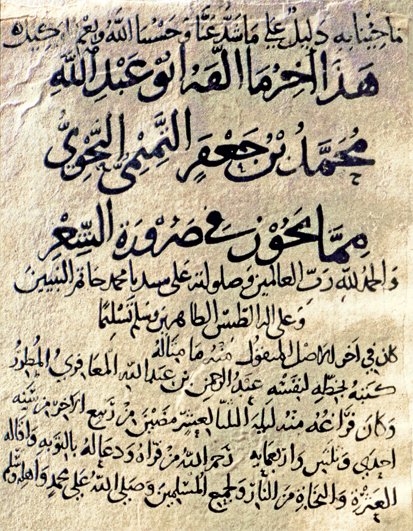 ما جئنا به دليل على ما شذ عنا وحسبنا الله ونعم الوكيل
هذا آخر ما ألفه أبو عبد الله
محمد بن جعفر التميمي النحوي
مما يجوز في ضرورة الشعر
والحمد لله رب العالمين وصلواته على سيدنا محمد خاتم النبيين
وعلى آله الطيبين الطاهرين وسلم تسليما
كان في آخر الأصل المنقول منه ما مثاله
كتبه بخطه لنفسه عبد الرحمن بن عبد الله المعافري
وكان فراغه منه ليلة الثلثا لعشر مضين من ربيع الآخر من سنة
إحدى وثلثين وأربعمايه رحم الله من قرأه ودعا له بالتوبة وإقالة
العثرة والنجاة من النار ولجميع المسلمين وصلى الله على محمد وأهله وسلم